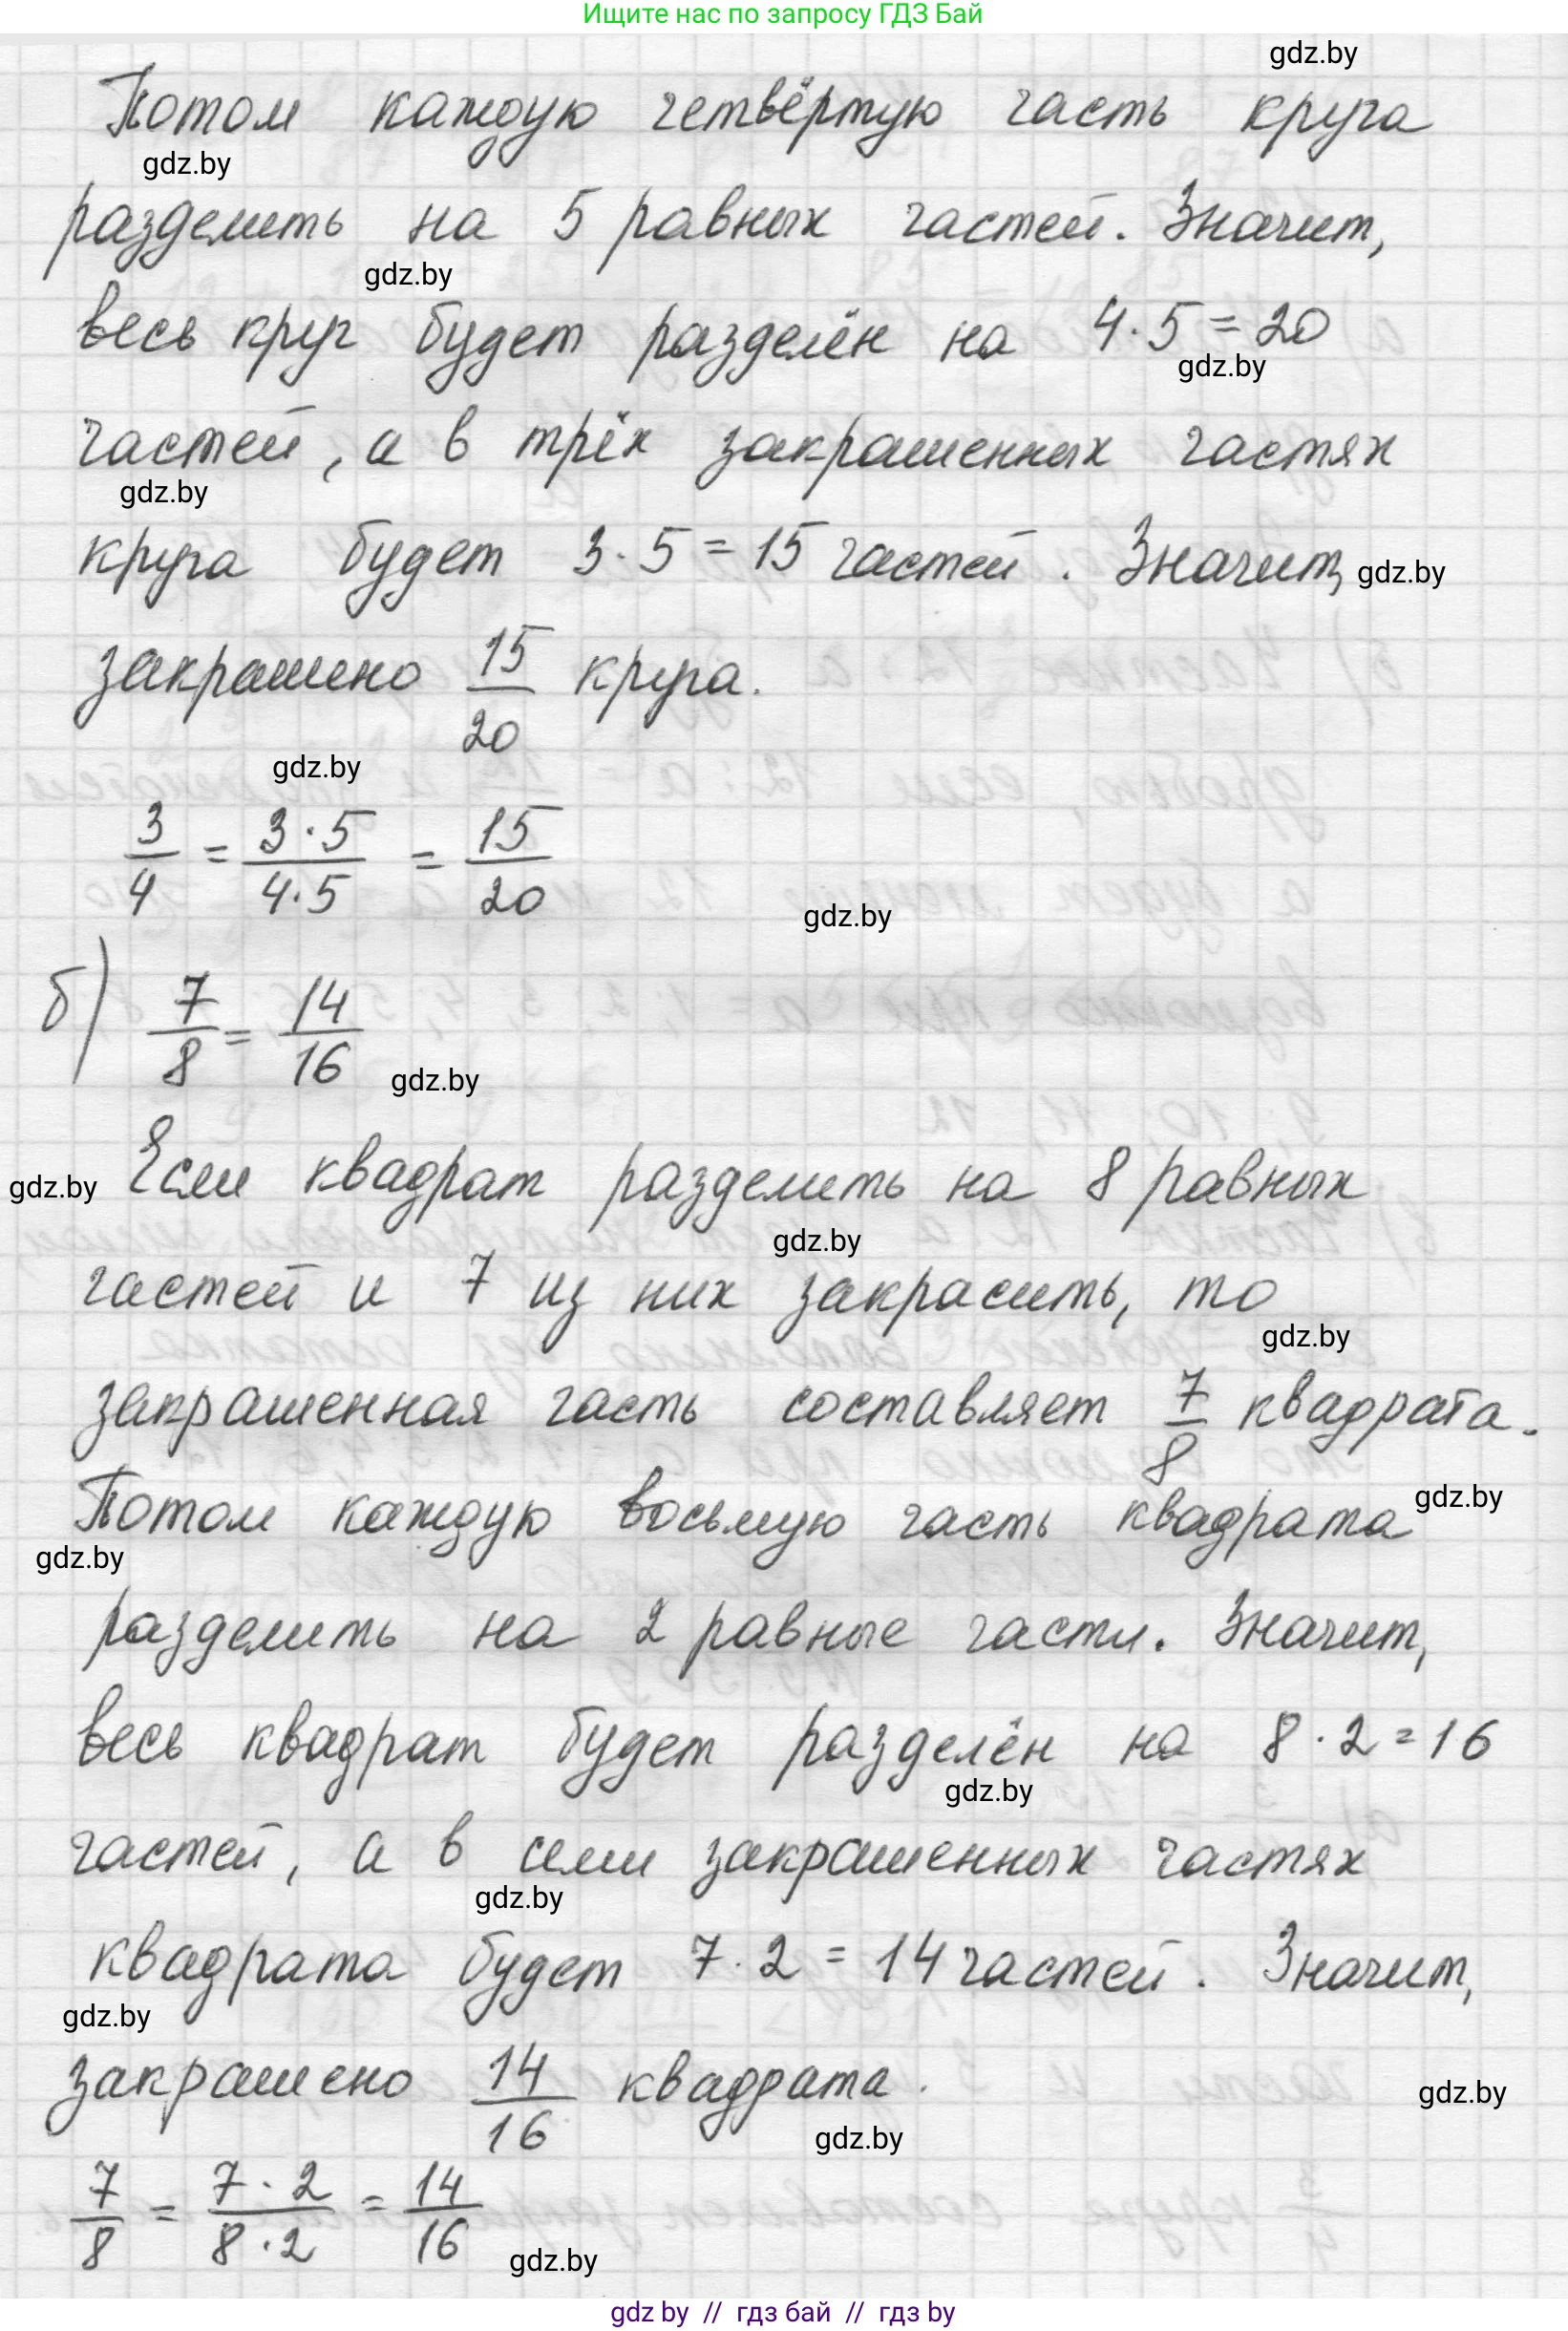 Ищите нас по запросу ГДЗ Бай
gdz.by
Потом каждую четвёртую часть круга
gdz.by
разделить на 5 равных частей. Значит,
gdz.by
весь круг будет разделён на 4·5=20
gdz.by
частей, а в трёх закрашенных частях
gdz.by
круга будет 3·5=15 частей. Значит, gdz.by
закрашено 15/20 круга.
gdz.by
3/4 = 3·5/4·5 = 15/20
gdz.by
б) 7/8 = 14/16
gdz.by
gdz.by Если квадрат разделить на 8 равных
gdz.by
частей и 7 из них закрасить, то
gdz.by
закрашенная часть составляет 7/8 квадрата.
gdz.by
Потом каждую восьмую часть квадрата
gdz.by
разделить на 2 равные части. Значит,
весь квадрат будет разделён на 8·2=16
gdz.by
частей, а в семи закрашенных частях
gdz.by
квадрата будет 7·2=14 частей. Значит,
gdz.by
закрашено 14/16 квадрата.
gdz.by
gdz.by
7/8 = 7·2/8·2 = 14/16
gdz.by
gdz by // гдз бай // гдз by